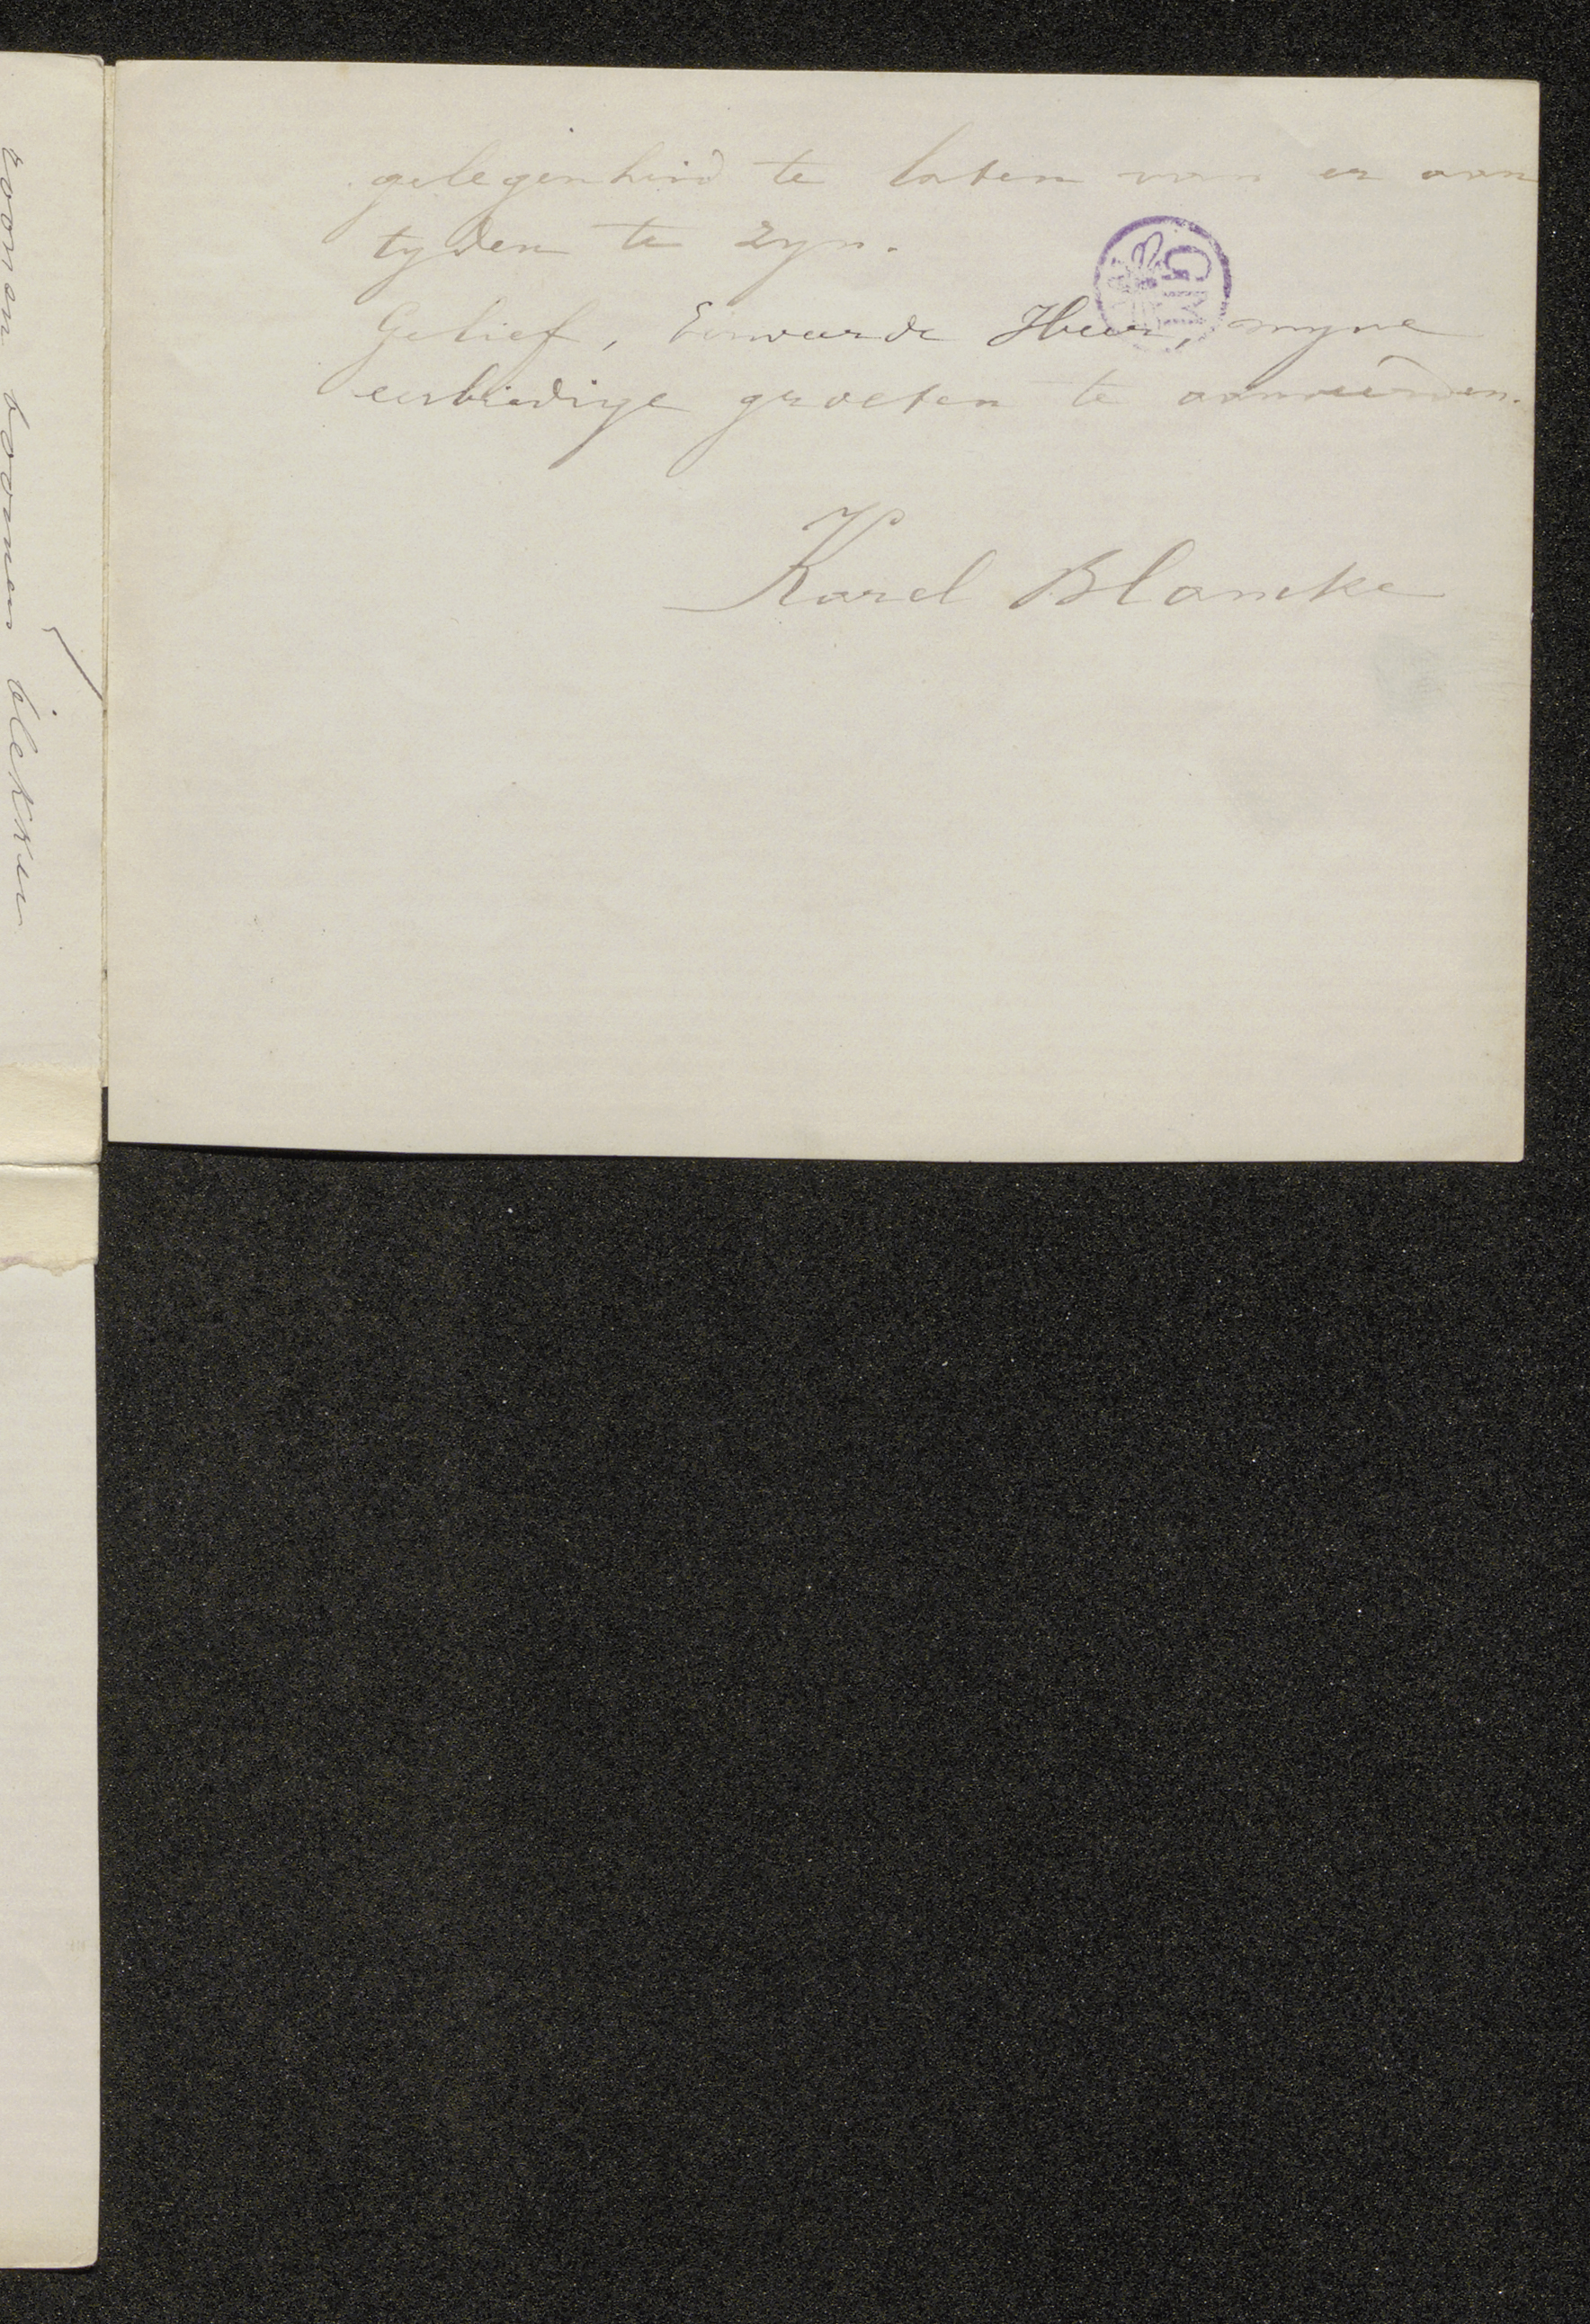 gelegenheid te laten van er aan
tyden te zyn.
Gelief, Eerweerde Heer, myne
eerbiedige groeten te aanveerden.
Karel Blancke
GMG
boomen blekken